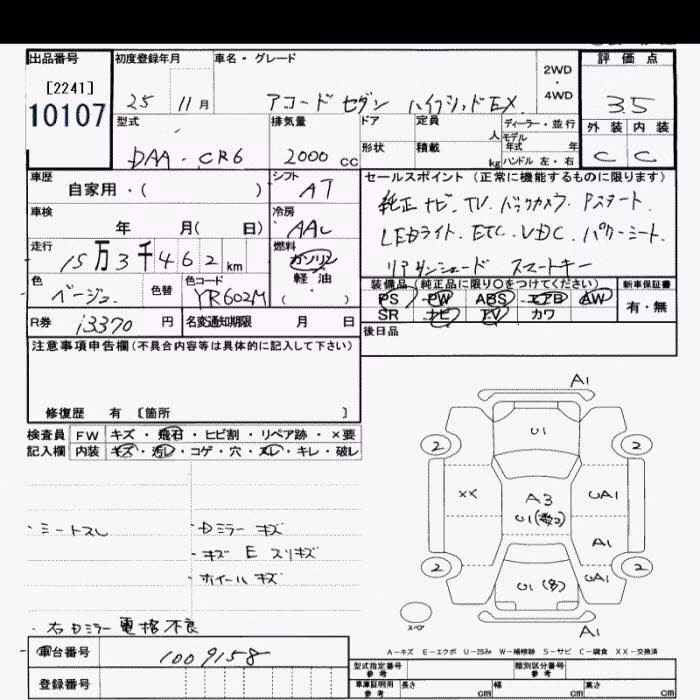 出品番号 初度登録年月 車名・グレード 評価点
[2241] 2WD ・ 4WD
10107 25 11月 アコード セダン ハイブリッドEX 3.5
型式 排気量 ドア 定員 人 ディーラー・並行 外装 内装
モデル年式 年
DAA-CR6 2000cc 形状 積載 kg ハンドル 左・右 C C
車歴 シフト セールスポイント (正常に機能するものに限ります)
自家用・( ) AT 純正ナビ. TV. バックカメラ. Pスタート.
車検 冷房
年 月( 日) AAC LEDライト. ETC. VDC. パワーミート.
走行 燃料
15万3千462km ガソリン リアサンシェード スマートキー
軽油
色 色替 色コード ( ) 装備品(純正品に限り○をつけてください) 新車保証書
ベージュ YR602M PS PW ABS エアB AW 有・無
R券 13370円 名変通知期限 月 日 SR ナビ TV カワ
後日品
注意事項申告欄(不具合内容等は具体的に記入して下さい)
修復歴 有 [箇所 ]
検査員 FW キズ・飛石・ヒビ割・リペア跡・×要
記入欄 内装 キズ・汚レ・コゲ・穴・スレ・キレ・破レ
A1
U1
2 2
XX A3 UA1
U1(数コ)
A1
2 2
U1(多) UA1
スペア A1
・ミートスレ ・Dミラー キズ
・キズ E スリキズ
・ホイール キズ
・右Dミラー 電格不良
A-キズ E-エクボ U-凹み W-補修跡 S-サビ C-腐食 XX-交換済
車台番号 1009158
型式指定番号 参考 類別区分番号 参考
登録番号 車庫証明用 参考 長さ cm 幅 cm 高さ cm